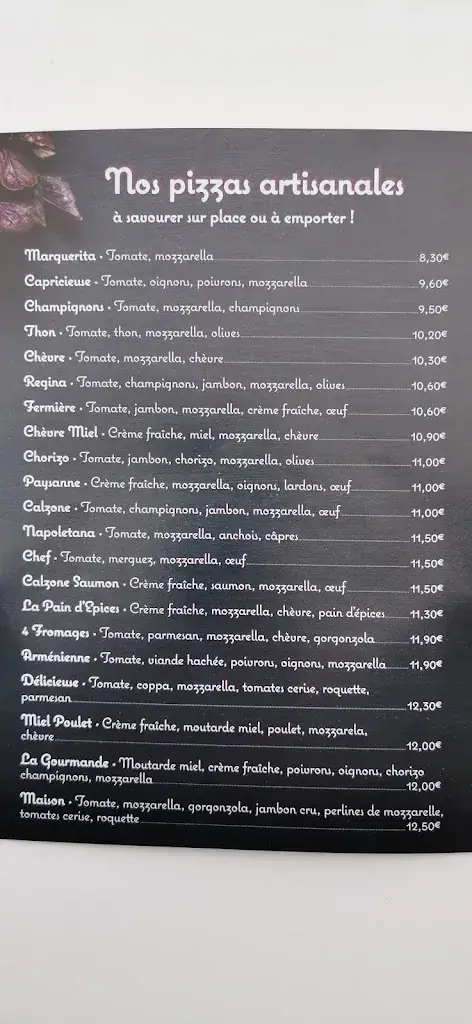 Nos pizzas artisanales
à savourer sur place ou à emporter !
Marguerita • Tomate, mozzarella 8,30€
Capricieuse • Tomate, oignons, poivrons, mozzarella 9,60€
Champignons • Tomate, mozzarella, champignons 9,50€
Thon • Tomate, thon, mozzarella, olives 10,20€
Chèvre • Tomate, mozzarella, chèvre 10,30€
Regina • Tomate, champignons, jambon, mozzarella, olives 10,60€
Fermière • Tomate, jambon, mozzarella, crème fraîche, œuf 10,60€
Chèvre Miel • Crème fraîche, miel, mozzarella, chèvre 10,90€
Chorizo • Tomate, jambon, chorizo, mozzarella, olives 11,00€
Paysanne • Crème fraîche, mozzarella, oignons, lardons, œuf 11,00€
Calzone • Tomate, champignons, jambon, mozzarella, œuf 11,00€
Napoletana • Tomate, mozzarella, anchois, câpres 11,50€
Chef • Tomate, merguez, mozzarella, œuf 11,50€
Calzone Saumon • Crème fraîche, saumon, mozzarella, œuf 11,50€
La Pain d'Epices • Crème fraîche, mozzarella, chèvre, pain d'épices 11,30€
4 Fromages • Tomate, parmesan, mozzarella, chèvre, gorgonzola 11,90€
Arménienne • Tomate, viande hachée, poivrons, oignons, mozzarella 11,90€
Délicieuse • Tomate, coppa, mozzarella, tomates cerise, roquette,
parmesan 12,30€
Miel Poulet • Crème fraîche, moutarde miel, poulet, mozzarela,
chèvre 12,00€
La Gourmande • Moutarde miel, crème fraîche, poivrons, oignons, chorizo
champignons, mozzarella 12,00€
Maison • Tomate, mozzarella, gorgonzola, jambon cru, perlines de mozzarelle,
tomates cerise, roquette 12,50€